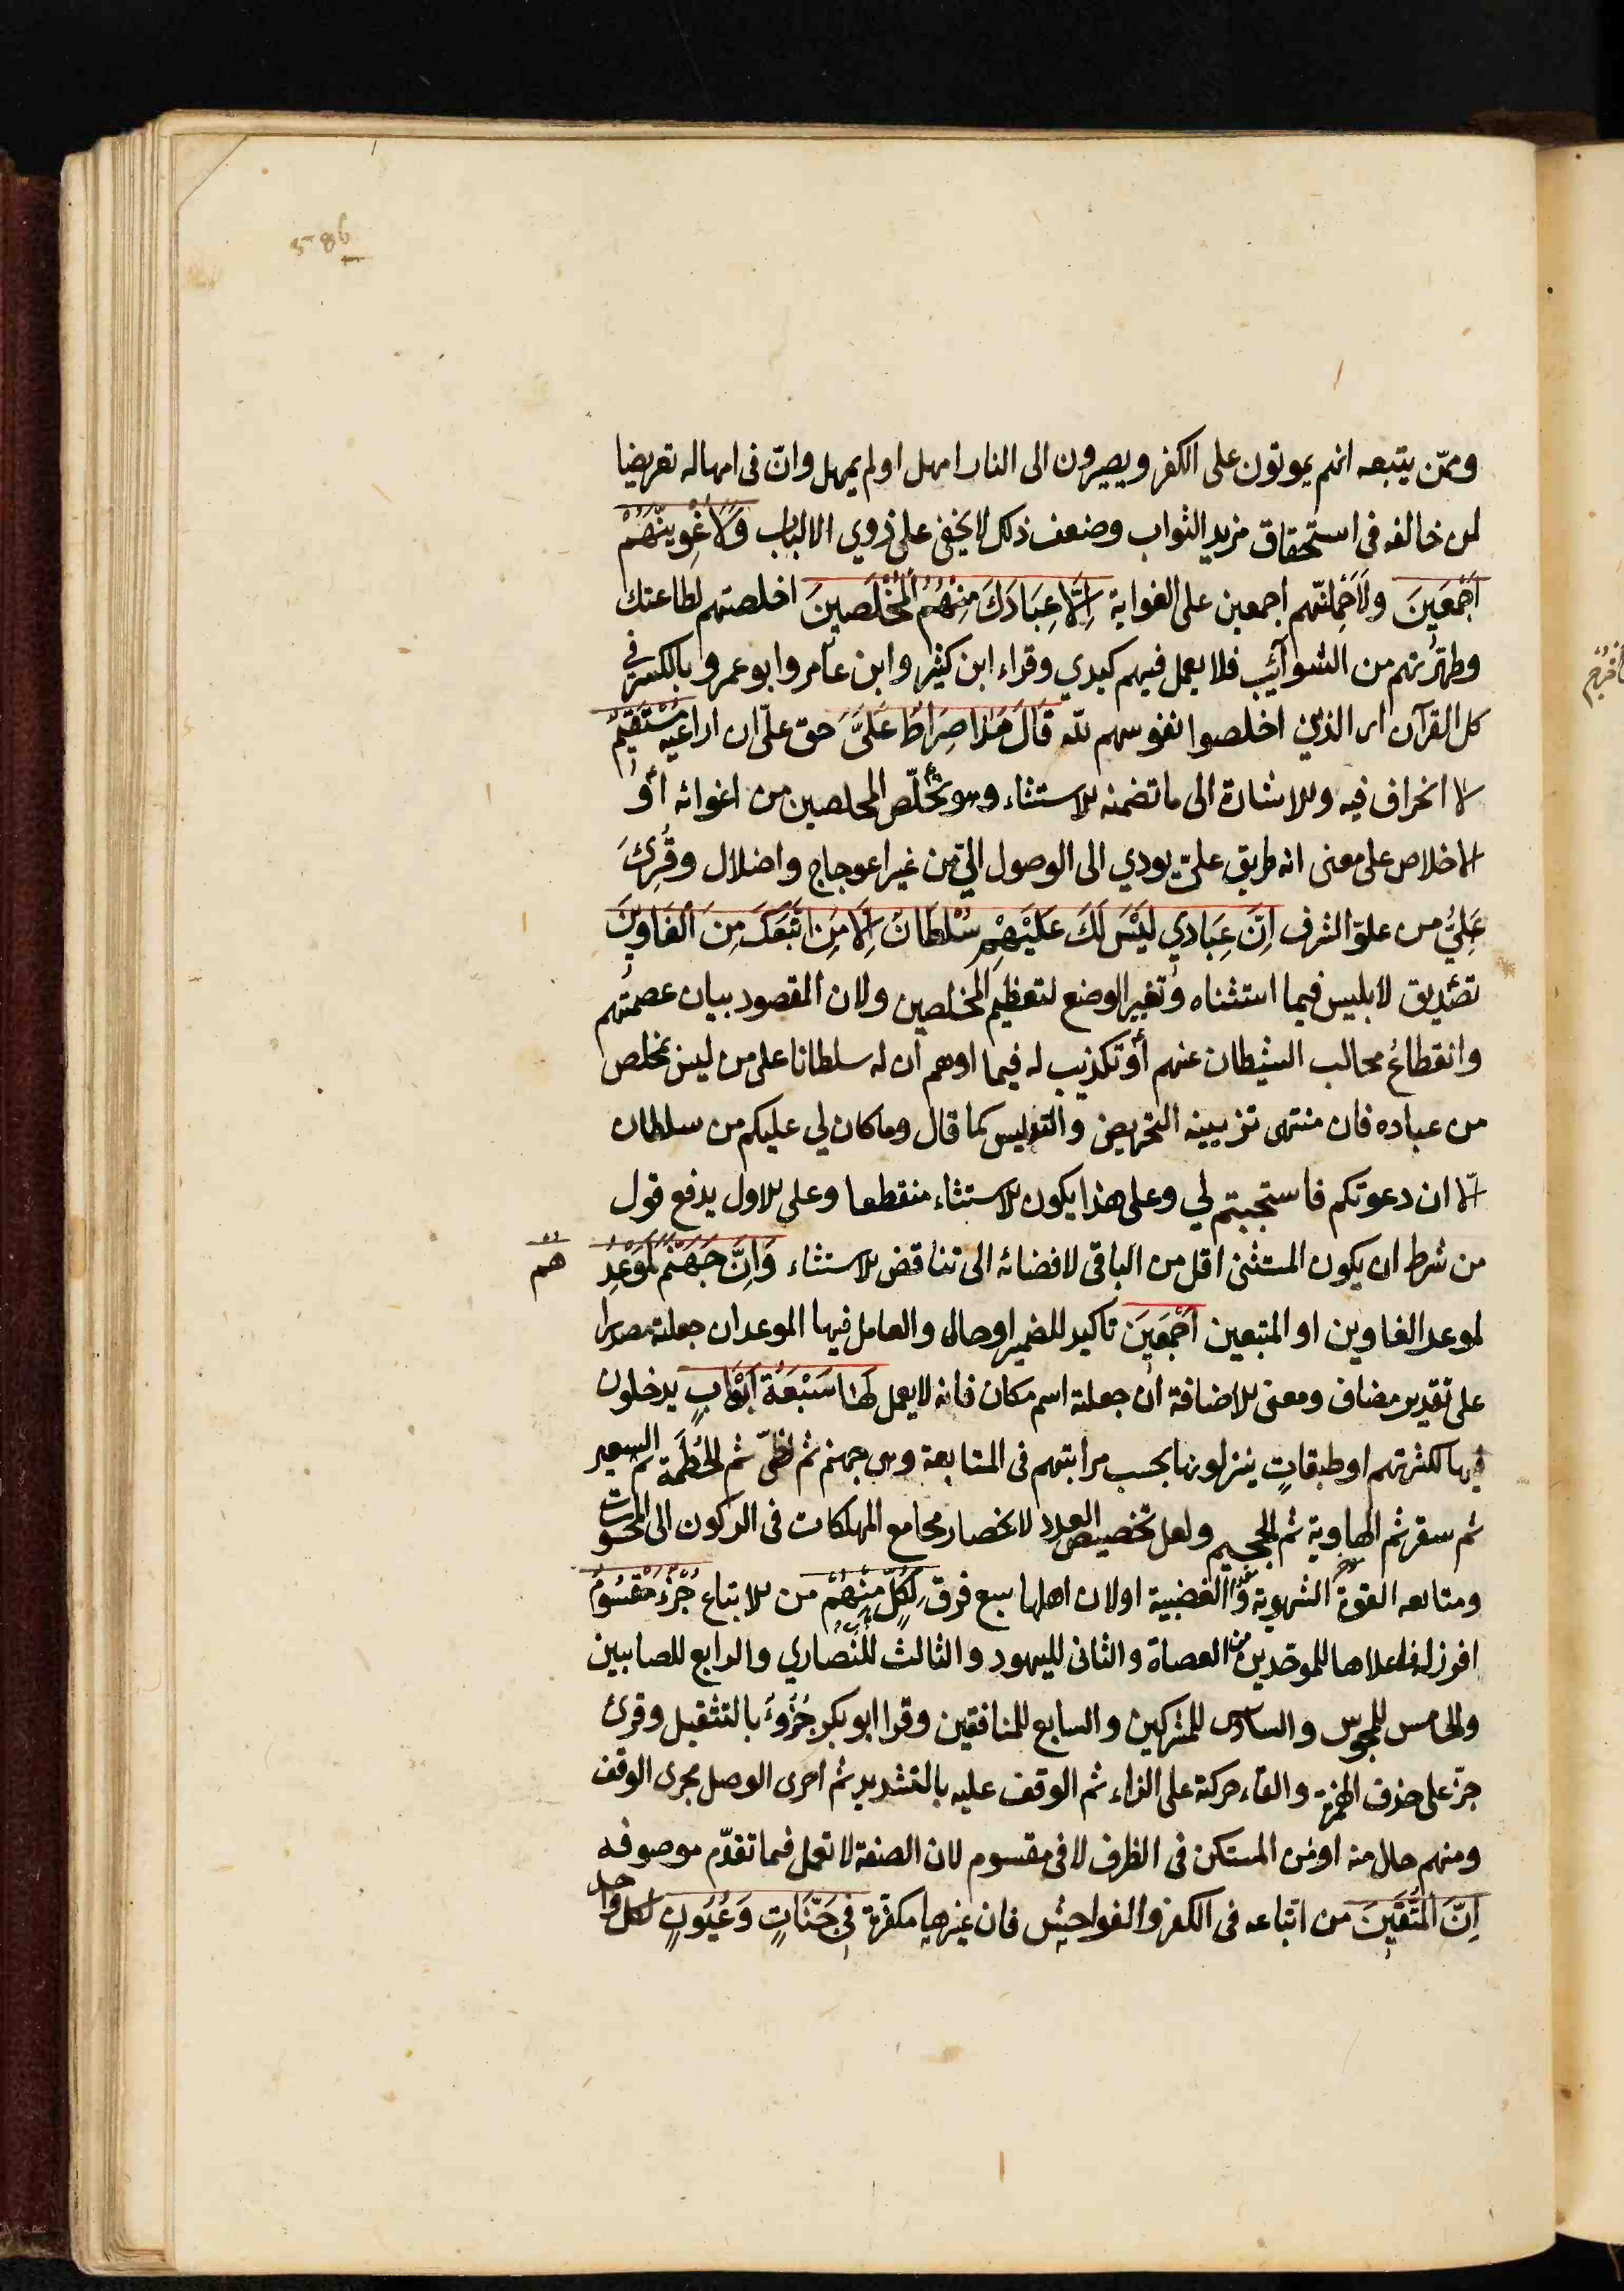 586
وممّن يتبعه انهم يموتون على الكفر ويصيرون الى النار امهل اولم يمهل وانّ فى امهاله تعريضا
لمن خالفه فى استحقاق مزيد الثواب وضعف ذلك لا يخفى على ذوي الالباب وَلَاُغْوِيَنَّهُمْ
اَجْمَعِينَ ولَاَحْمِلَنّهم اجمعين على الغواية اِلَّا عِبَادَكَ مِنْهُمُ الْمُخْلَصِينَ اخلصتهم لطاعتك
وطهّرتهم من الشوائب فلا يعمل فيهم كيدي وقراء ابن كثير وابن عامر وابو عمرو بالكسر فى
كل القرآن اى الذين اخلصوا نفوسهم لله قَالَ هٰذَا صِرَاطٌ عَلَىَّ حق علىّ ان اراعيه مُسْتَقِيمٌ
لا انحراف فيه والاشارة الى ما تضمنه الاستثناء وهو تخلّص المخلصين من اغوائه أو
الاخلاص على معنى انه طريق علىّ يودي الى الوصول الىّ من غير اعوجاج واضلال وقُرِئَ
عَلِيٌّ من علوّ الشرف اِنَّ عِبَادِي لَيْسَ لَكَ عَلَيْهِمْ سُلْطَانٌ اِلَّا مَنِ اتَّبَعَكَ مِنَ الْغَاوِينَ
تصديق لابليس فيما استثناه وتغيير الوضع لتعظيم المخلصين ولان المقصود بيان عصمتهم
وانقطاعُ مخالب الشيطان عنهم أو تكذيب له فيما اوهم ان له سلطانا على من ليس بمخلص
من عباده فان منتهى تزيينه التحريض والتدليس كما قال وما كان لي عليكم من سلطان
الّا ان دعوتكم فاستجبتم لي وعلى هذا يكون الاستثناء منقطعا وعلى الاول يدفع قول
من شرط ان يكون المستثنى اقل من الباقى لافضائه الى تناقض الاستثناء وَاِنَّ جَهَنَّمَ لَمَوْعِدُ
هم
لموعد الغاوين او المتبعين اَجْمَعِينَ تاكيد للضمير او حال والعامل فيها الموعد ان جعلته مصدرا
على تقدير مضاف ومعنى الاضافة ان جعلته اسم مكان فانه لا يعمل لَهَا سَبْعَةُ اَبْوَابٍ يدخلون
فيها لكثرتهم او طبقاتٍ ينزلونها بحسب مراتبهم فى المتابعة وهى جهنم ثم لظىّ ثم الحُطَمَة ثم السعير
ثم سقر ثم الهاوية ثم الجحيم ولعل تخصيص العدد لانحصار مجامع المهلكات فى الركون الى المحسوسات
ومتابعه القوة الشهوية والغضبية او لان اهلها سبع فرق لِكُلِّ مِنْهُمْ من الاتباع جُزْءٌ مَقْسُومٌ
افرز له فاعلاها للموحّدين من العصاة والثانى لليهود والثالث للنصاري والرابع للصابيين
والخامس للمجوس والسادس للمشركين والسابع للمنافقين وقرا ابو بكر جُزُوءٌ بالتثقيل وقرئ
جزّ على حذف الهمزة والقاء حركته على الزاء ثم الوقف عليه بالتشديد ثم اجرى الوصل مجرى الوقف
ومنهم حال منه او من المستكن فى الظرف لا فى مقسوم لان الصفة لا تعمل فيما تقدّم موصوفه
اِنَّ الْمُتَّقِينَ من اتباعه فى الكفر والفواحش فان غيرها مكفّرة فِي جَنَّاتٍ وَعُيُونٍ لكل واحد